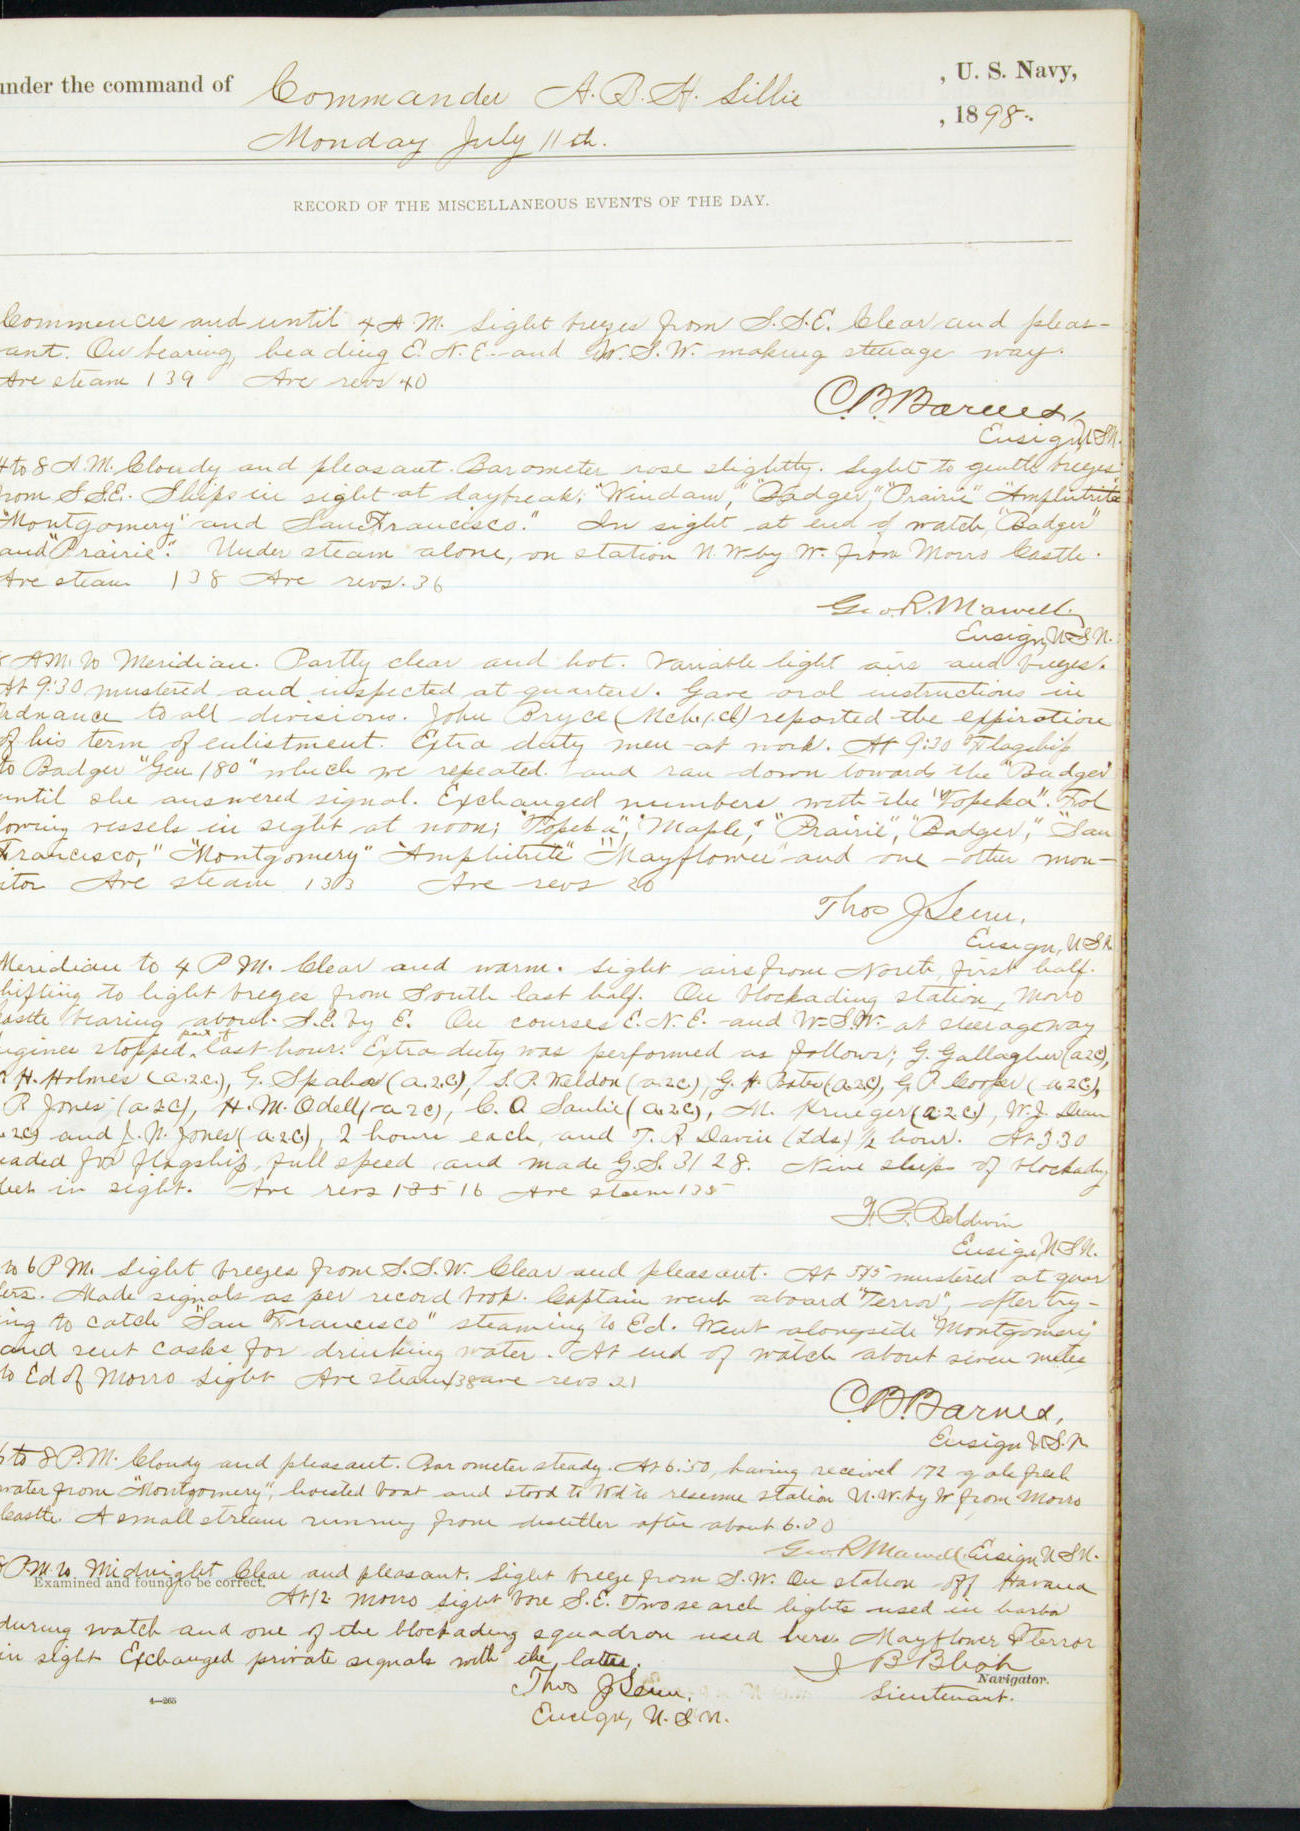 under the command of Commander A. B. H. Lillie , U. S. Navy,
Monday July 11th. , 1898.
RECORD OF THE MISCELLANEOUS EVENTS OF THE DAY.
Commences and until 4 A M. Light breezes from S.S.E. Clear and pleas-
ant. On bearing, heading E. N. E. and W. S. W. making steerage way.
Ave steam 139 Ave revs 40
C. B. Barnes,
Ensign, U.S.N.
4 to 8 A.M. Cloudy and pleasant. Barometer rose slightly. Light to gentle breezes
from S S.E. Ships in sight at daybreak; "Windom," "Badger," "Prairie" "Amphitrite"
"Montgomery" and San Francisco." In sight at end of watch, "Badger"
and "Prairie". Under steam alone, on station N. W. by W. from Morro Castle.
Ave steam 138 Ave revs. 36
Geo. R. Marvell,
Ensign, U S N.
8 AM. to Meridian. Partly clear and hot. Variable light airs and breezes.
At 9:30 mustered and inspected at quarters. Gave oral instructions in
Ordnance to all divisions. John Bryce (Mch. 1.cl) reported the expiration
of his term of enlistment. Extra duty men at work. At 9:30 Flagship
to Badger "Gen 180" which we repeated and ran down towards the "Badger"
until she answered signal. Exchanged numbers with the "Topeka". Fol
lowing vessels in sight at noon; "Topeka", "Maple," "Prairie", "Badger," "San
Francisco," "Montgomery" "Amphitrite" "Mayflower" and one other mon-
itor Ave steam 133 Ave revs 20
Thos J Senn.
Ensign, U S N.
Meridian to 4 P M. Clear and warm. Light airs from North, first half.
shifting to light breezes from South last half. On blockading station, Morro
castle bearing about S.E. by E. On courses E. N. E. and W.S.W. at steerageway
engines stopped part of last hour. Extra duty was performed as follows; G. Gallagher (a2c),
H. Holmes (a.2.c.), G. Spaber (a.2.c), S. P. Weldon (a2c), G. H. Bates (a.2.c), G. P. Cooper (a.2c),
P. Jones (a.2c), H. M. Odell (a 2c), C. A Saulie (a.2.c), M. Krueger (a.2.c), W. J. Dean
.2c) and J. N. Jones (a.2.c), 2 hours each, and T. R Davin (Lds) 1/2 hour. At 3 30
headed for flagship, full speed and made G.S. 3128. Nine ships of blockading
fleet in sight. Ave revs 16 Ave steam 135
F. P. Baldwin
Ensign, U.S.N.
to 6 P M. Light breezes from S.S.W. Clear and pleasant. At 5.15 mustered at quar
ters. Made signals as per record book. Captain went aboard "Terror", after try-
ing to catch "San Francisco" steaming to Ed. Went alongside "Montgomery"
and sent casks for drinking water. At end of watch about seven miles
to Ed of Morro Light Ave steam 138 ave revs 21
C. B. Barnes,
Ensign U.S.N.
6 to 8 P.M. Cloudy and pleasant. Barometer steady. At 6:50, having received 172 gals fresh
water from "Montgomery", hoisted boat and stood to Wd to resume station N.W. by W from Morro
Castle. A small stream running from distiller after about 6.30
Geo R Marvell Ensign U S N.
8 P.M. to Midnight Clear and pleasant. Light breeze from S.W. On station off Havana
Examined and found to be correct.
At 12 Morro light bore S.E. Two search lights used in harbor
during watch and one of the blockading squadron used hers. Mayflower & Terror
in sight Exchanged private signals with the latter.
Thos J Senn.
Ensign, U. S N.
Navigator.
Lieutenant.
4—265